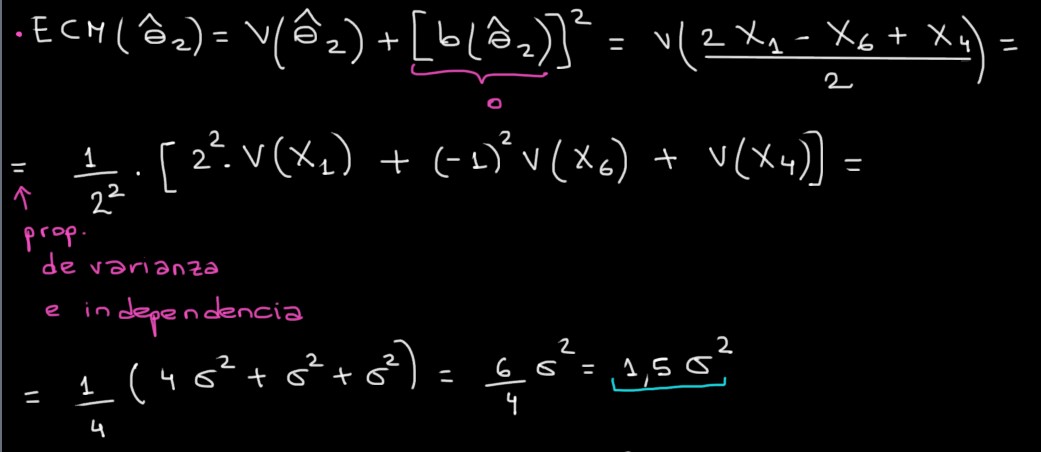 · ECM(θ̂₂) = V(θ̂₂) + [b(θ̂₂)]² = V((2X₁ - X₆ + X₄)/2) =
0
= 1/2² · [2² · V(X₁) + (-1)² V(X₆) + V(X₄)] =
↑
prop.
de varianza
e independencia
= 1/4 (4σ² + σ² + σ²) = 6/4 σ² = 1,5 σ²